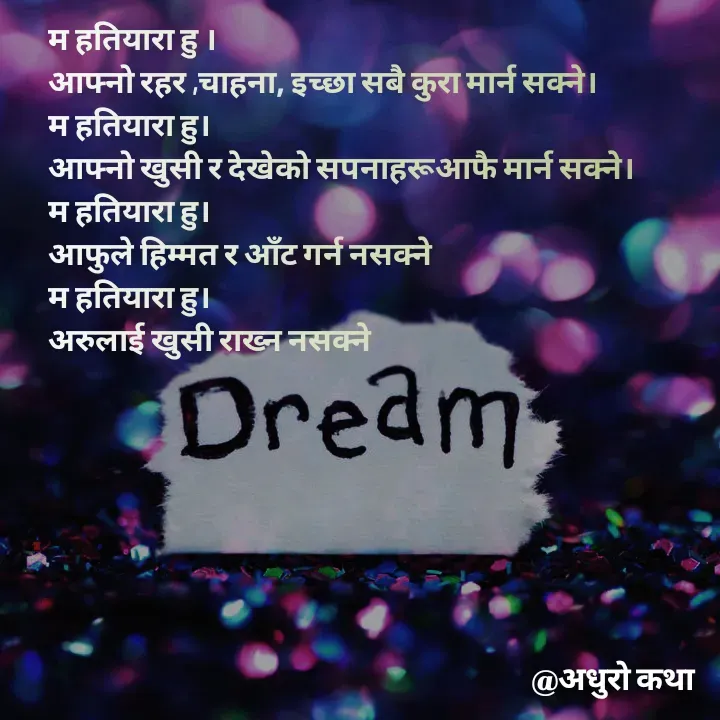 म हतियारा हु ।
आफ्नो रहर ,चाहना, इच्छा सबै कुरा मार्न सक्ने।
म हतियारा हु।
आफ्नो खुसी र देखेको सपनाहरूआफै मार्न सक्ने।
म हतियारा हु।
आफुले हिम्मत र आँट गर्न नसक्ने
म हतियारा हु।
अरुलाई खुसी राख्न नसक्ने
Dream
@अधुरो कथा